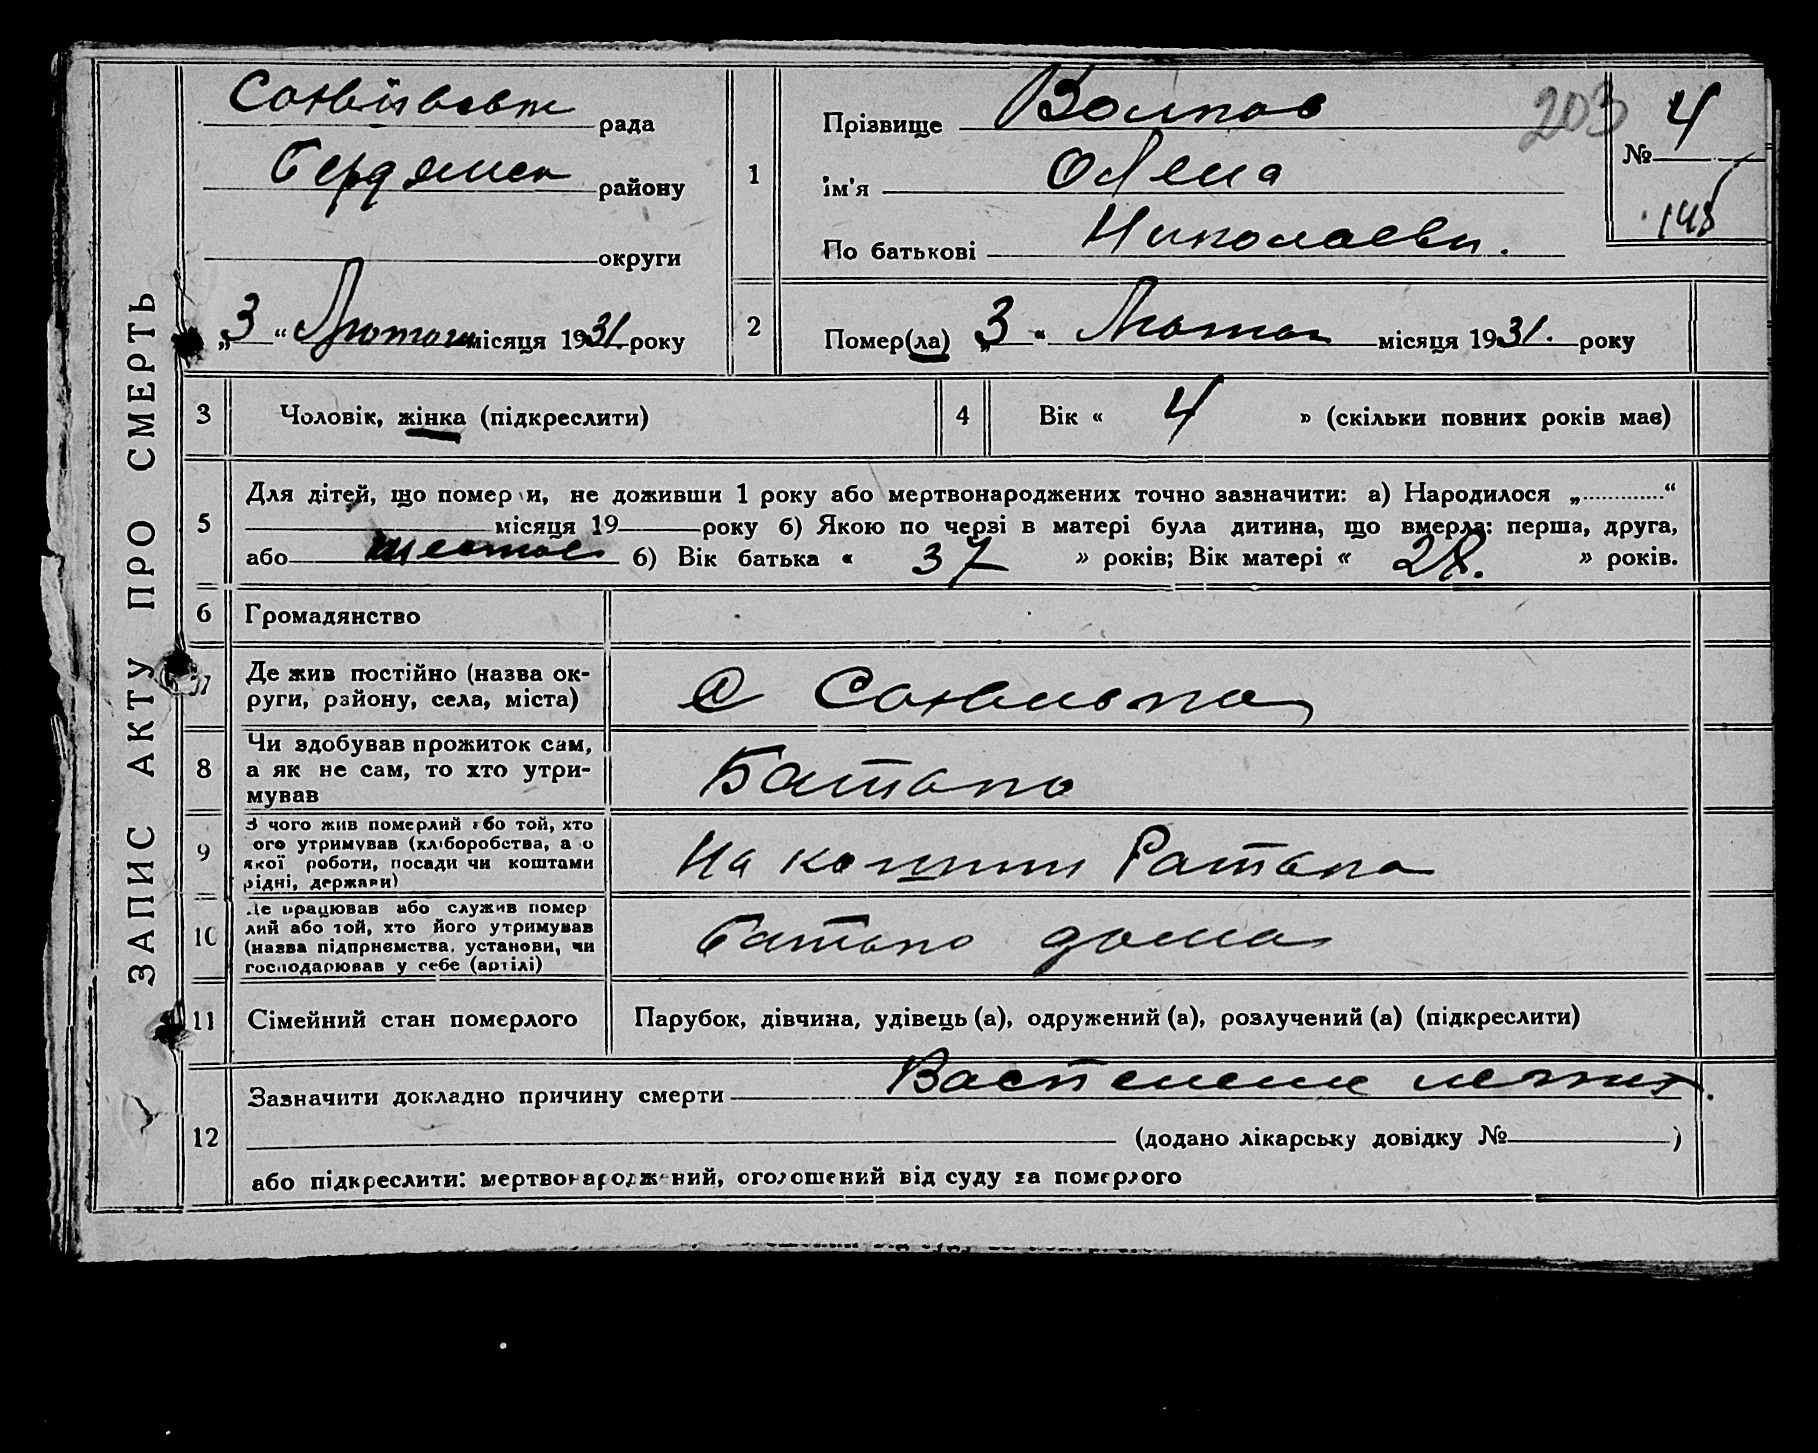 ЗАПИС АКТУ ПРО СМЕРТЬ
рада
Бердянск району
округи
„3“ Лютого місяця 1931 року
1
Прізвище
ім'я Олена
По батькові Николаевн.
203
№ 4
148
2
Помер(ла) „3“ Лютого місяця 1931. року
3 Чоловік, жінка (підкреслити)
4 Вік « 4 » (скільки повних років має)
5
Для дітей, що померли, не доживши 1 року або мертвонароджених точно зазначити: а) Народилося „............“
місяця 19 року б) Якою по черзі в матері була дитина, що вмерла: перша, друга,
або шестая б) Вік батька « 37 » років; Вік матері « 28. » років.
6 Громадянство
7
Де жив постійно (назва ок-
руги, району, села, міста)
С
8
Чи здобував прожиток сам,
а як не сам, то хто утри-
мував
Батько
9
З чого жив померлий або той, хто
ого утримував (хліборобства, а о
якої роботи, посади чи коштами
рідні, держави)
На кошти Батька
10
Де працював або служив помер
лий або той, хто його утримував
(назва підприємства, установи, чи
господарював у себе (артілі)
Батько дома
11 Сімейний стан померлого
Парубок, дівчина, удівець (а), одружений (а), розлучений (а) (підкреслити)
12
Зазначити докладно причину смерти
(додано лікарську довідку № )
або підкреслити: мертвонароджений, оголошений від суду за померлого